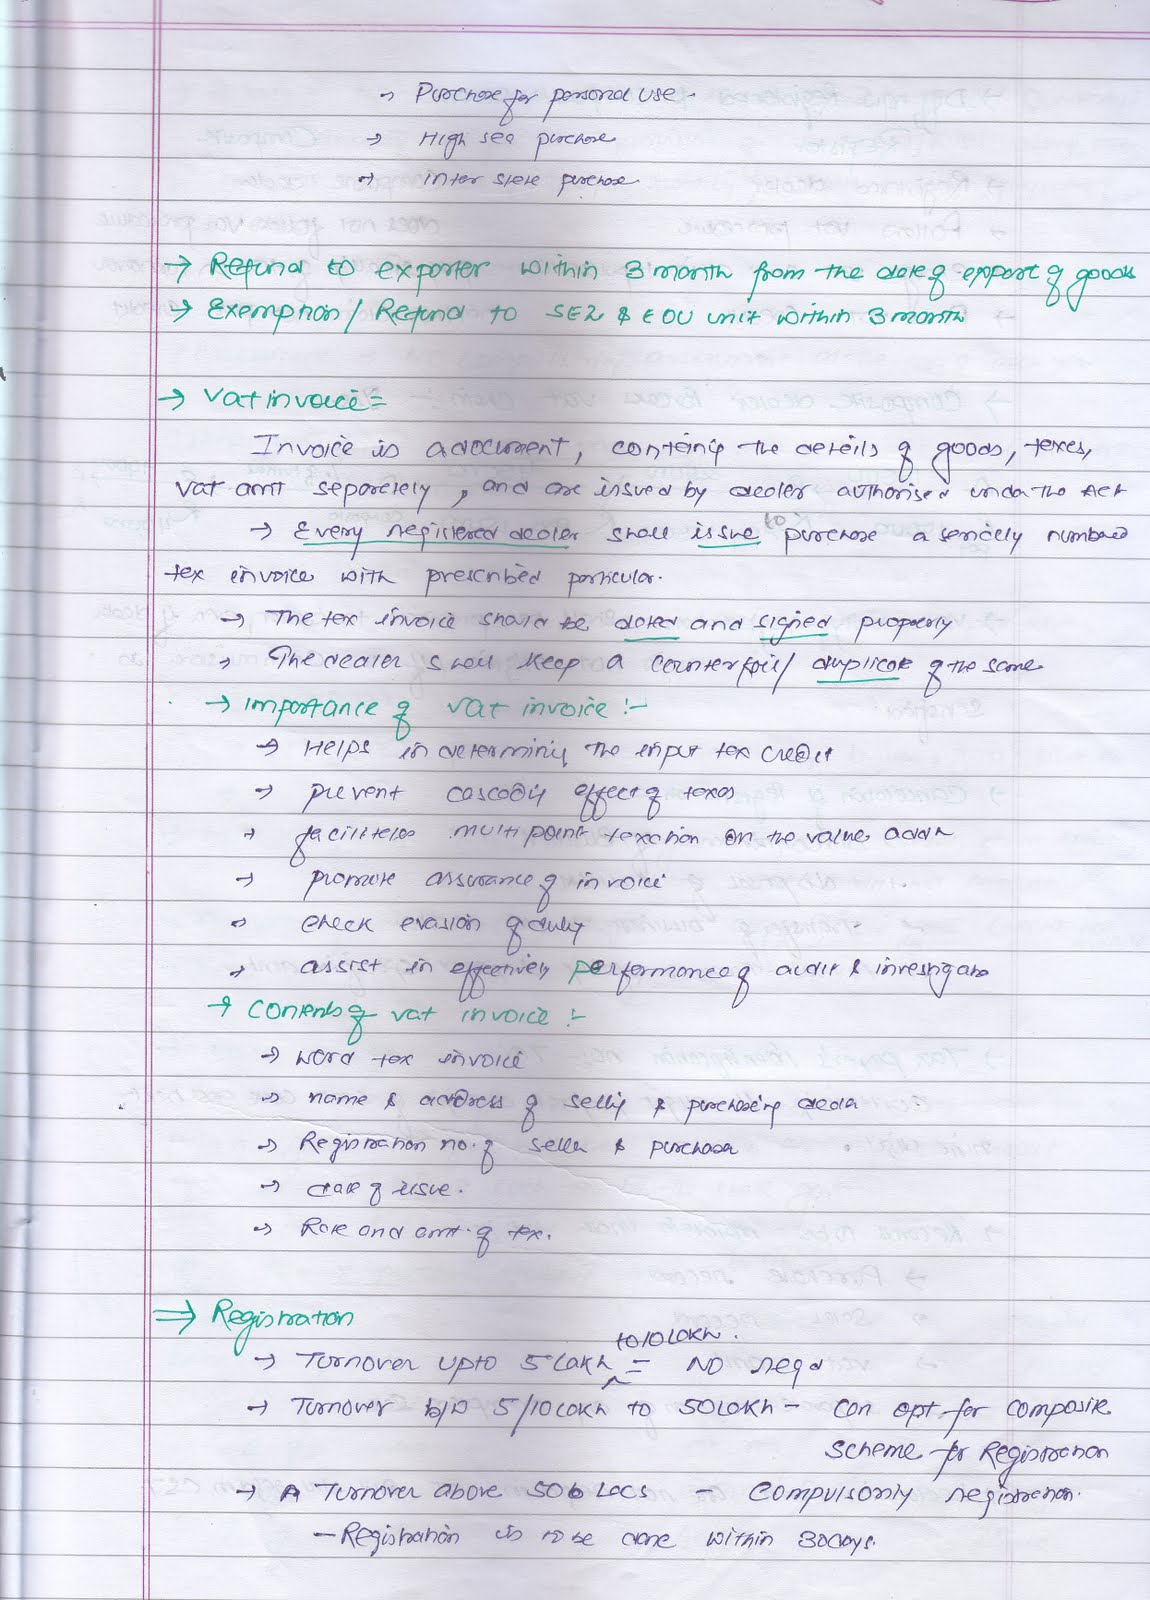 → Purchase for personal use.
→ High sea purchase
→ Inter state purchase.
→ Refund to exporter within 3 month from the date of export of goods
→ Exemption / Refund to SEZ & EOU unit within 3 month
→ Vat invoice =
Invoice is a document, containing the details of goods, taxes,
Vat amt separately, and are issued by dealer authorised under the Act
→ Every registered dealer shall issue purchase a serially numbered
tax invoice with prescribed particular.
→ The tax invoice should be dated and signed properly
→ The dealer shall keep a counterfoil / duplicate of the same
→ Importance of vat invoice :-
→ Helps in determining the input tax credit
→ prevent cascading effect of taxes
→ facilitates multi point taxation on the value addn
→ promote assurance of invoice
→ check evasion of duty
→ assist in effectively performance of audit & investigatn
→ Contents of vat invoice :-
→ word tax invoice
→ name & address of selling & purchasing dealer
→ Registration no. of seller & purchaser
→ date of issue.
→ Rate and amt. of tax.
⇒ Registration
to 10 lakh.
→ Turnover upto 5 lakh = No regd
→ Turnover b/w 5/10 lakh to 50 lakh - can opt for composite
scheme for Registration
→ Turnover above 50 Lacs - compulsorily registration.
- Registration is to be done within 30 days.